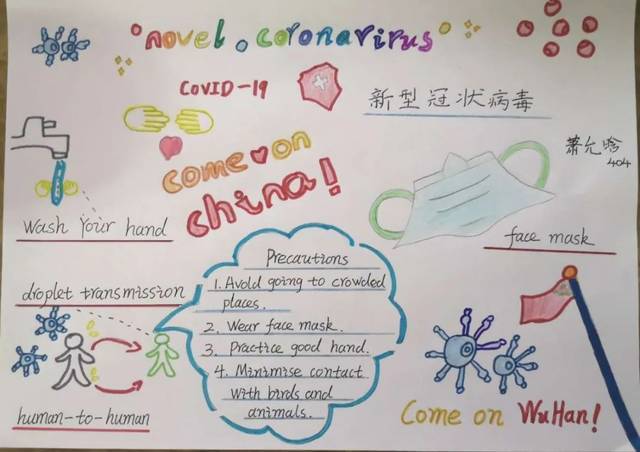 novel coronavirus
COVID-19
新型冠状病毒
404
come on
china!
wash your hand
face mask
droplet transmission
Precautions
1. Avold going to crowded
places.
2. Wear face mask.
3. Practice good hand.
4. Minimise contact
with birds and
animals.
human-to-human
Come on WuHan!